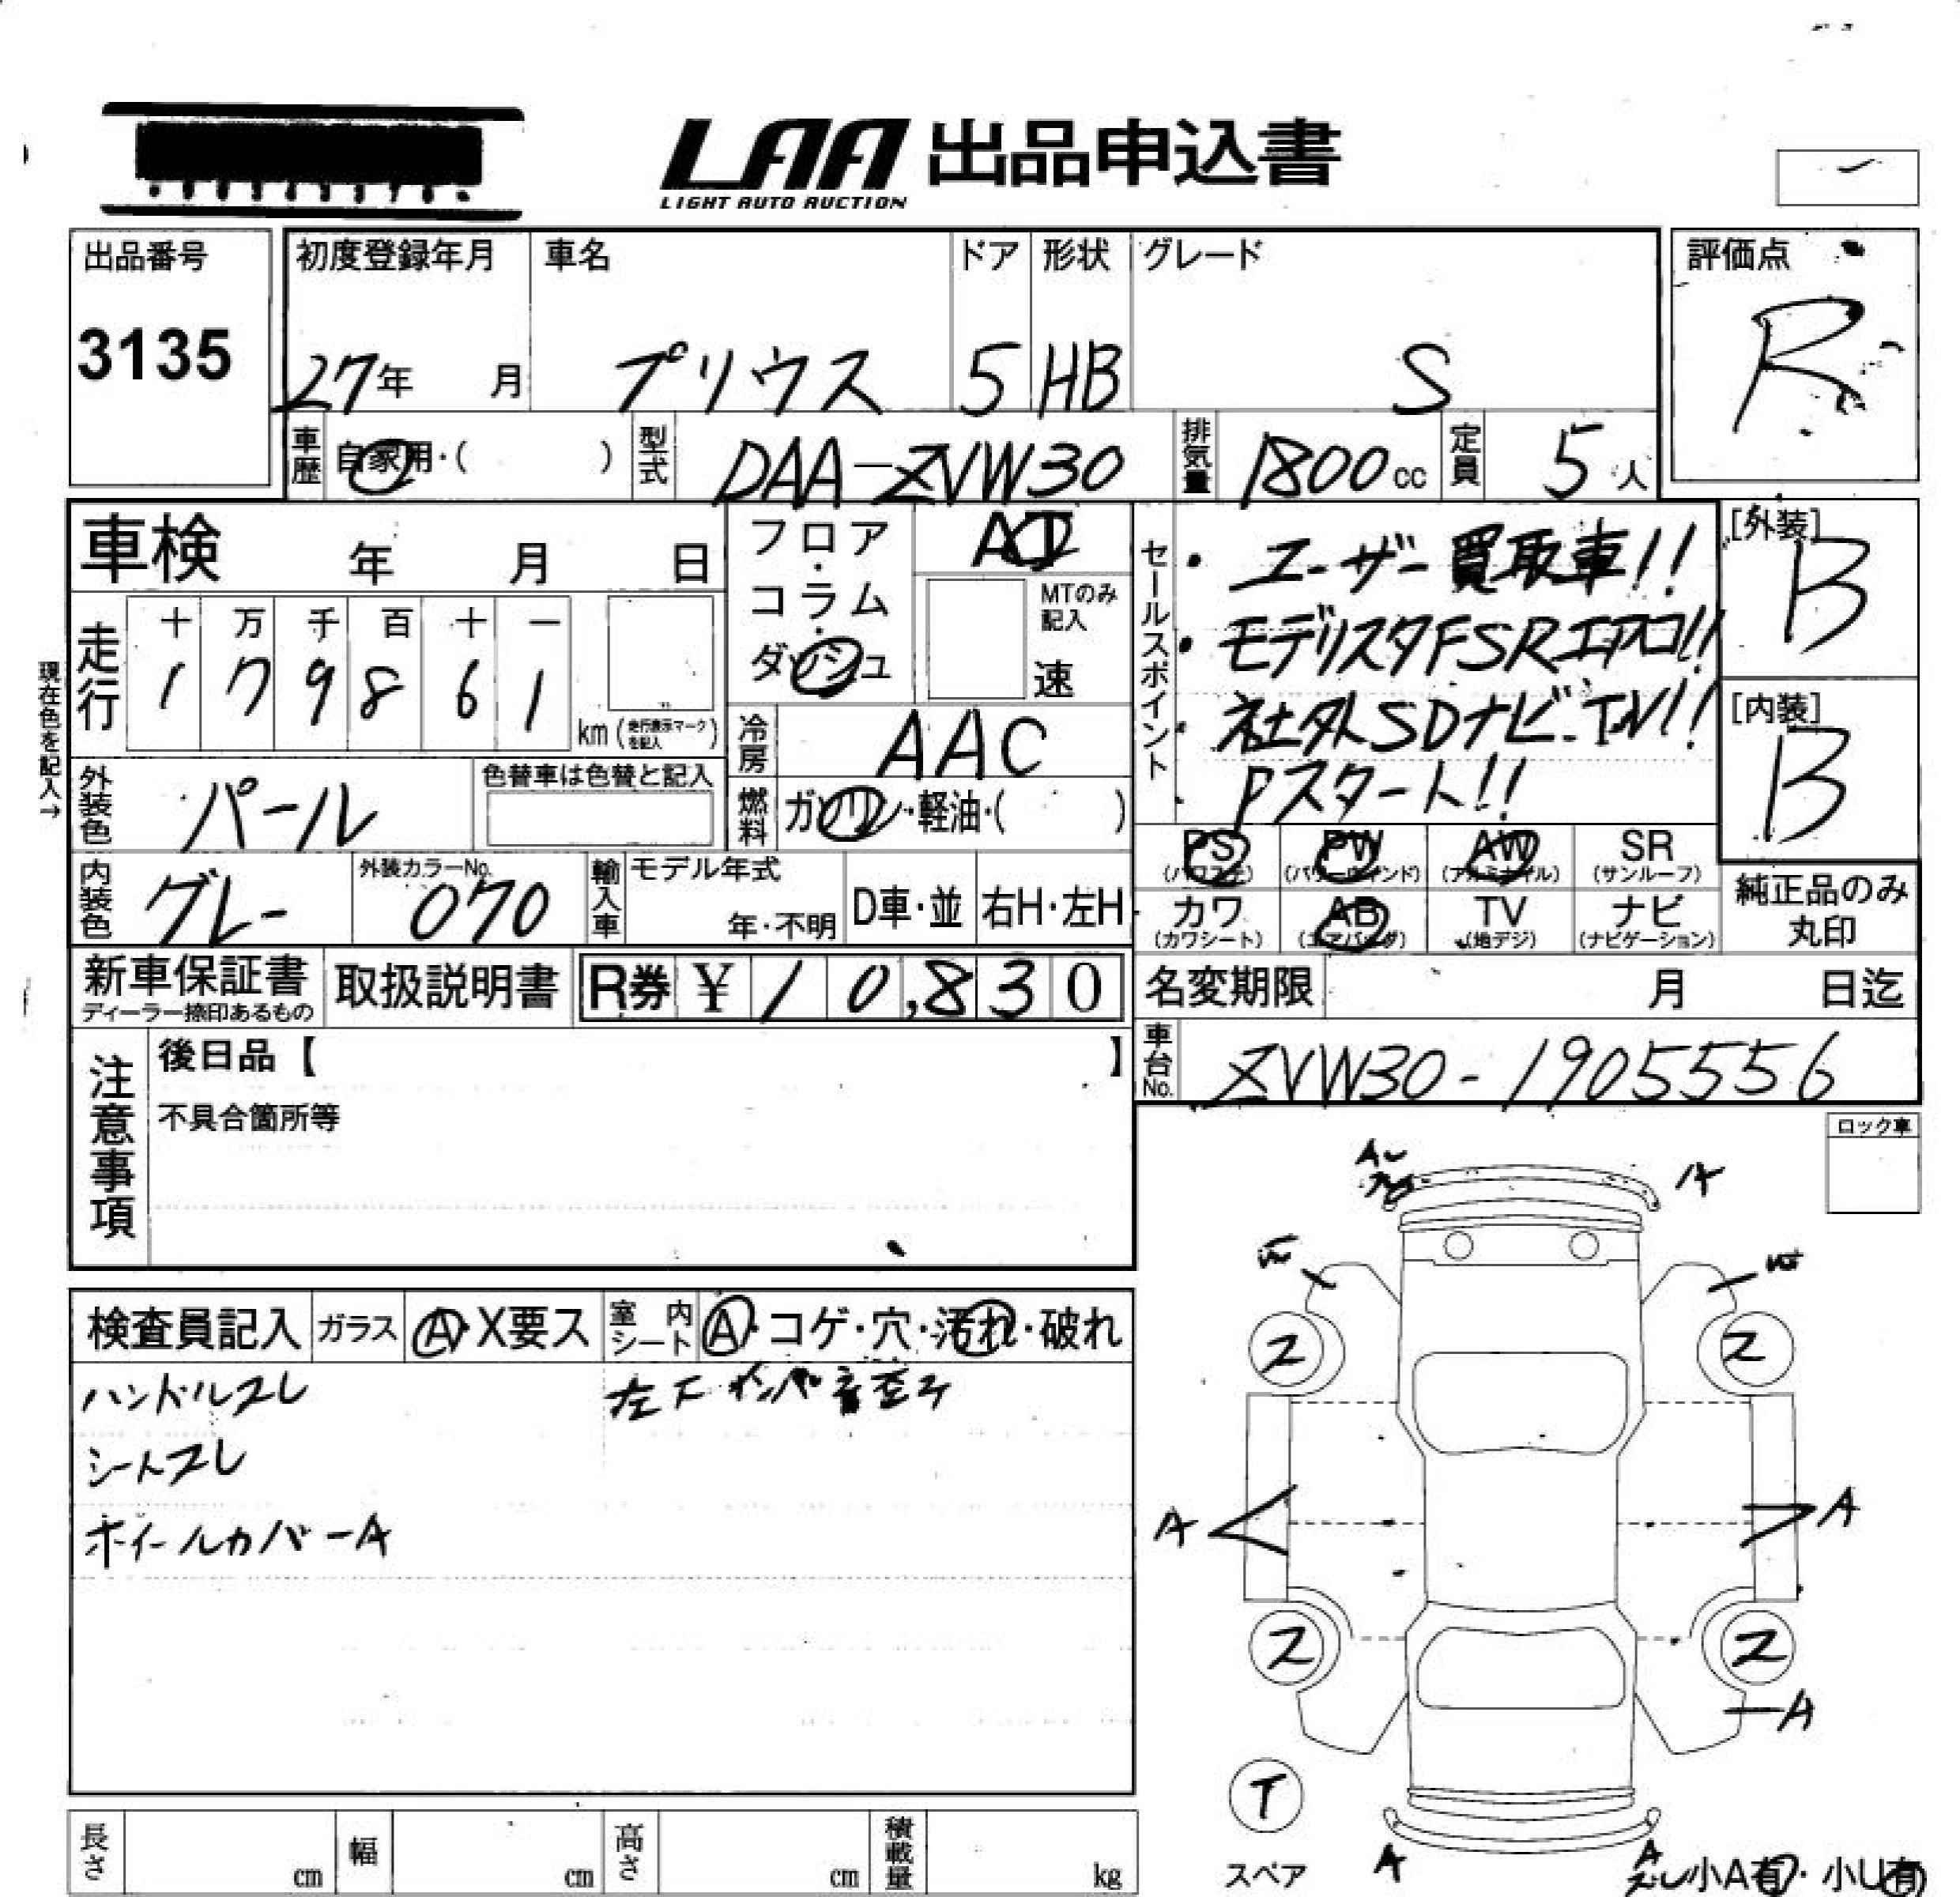 LAA 出品申込書
LIGHT AUTO AUCTION
出品番号
3135
初度登録年月
27年 月
車名
プリウス
ドア
5
形状
HB
グレード
S
評価点
R
車歴
自家用・( )
型式
DAA-ZVW30
排気量
1800cc
定員
5人
車検 年 月 日
フロア・コラム・ダッシュ
AT
MTのみ記入
速
セールスポイント
・ユーザー買取車!!
・モデリスタFSRエアロ!!
・社外SDナビ・TV!!
・Pスタート!!
[外装]
B
[内装]
B
現在色を記入→
走行
十 万 千 百 十 一
1 7 9 8 6 1
km(走行表示マークを記入)
冷房
AAC
外装色
パール
色替車は色替と記入
燃料
ガソリン・軽油・( )
内装色
グレー
外装カラーNo.
070
輸入車
モデル年式
年・不明
D車・並
右H・左H
PS
(パワステ)
PW
(パワーウインド)
AW
(アルミホイル)
SR
(サンルーフ)
カワ
(カワシート)
AB
(エアバッグ)
TV
(地デジ)
ナビ
(ナビゲーション)
純正品のみ
丸印
新車保証書
ディーラー捺印あるもの
取扱説明書
R券 ¥10,830
名変期限 月 日迄
車台No.
ZVW30-1905556
注意事項
後日品【 】
不具合箇所等
ロック車
検査員記入
ガラス
A・X要ス
室内シート
A・コゲ・穴・汚れ・破れ
ハンドルスレ
シートスレ
ホイールカバーA
左F インパ
A
A
ス
ス
A
A
ス
ス
A
T
スペア
A
A
小A有・小U有
長さ cm
幅 cm
高さ cm
積載量 kg